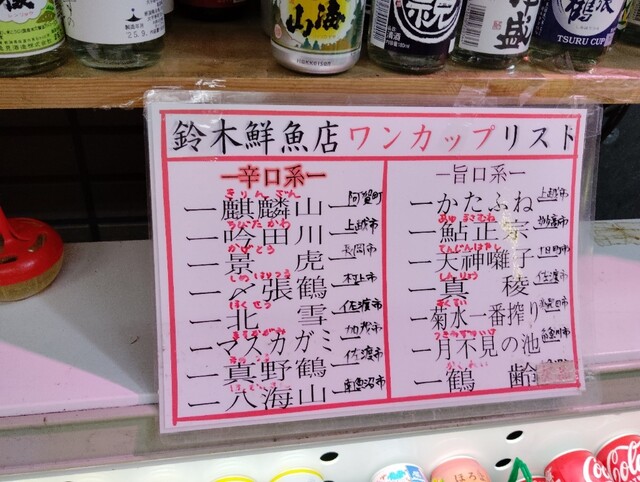 製造年月
25.9
山海
Hakkaisan
清酒
盛
鶴
TSURU CUP
鈴木鮮魚店ワンカップリスト
ー辛口系ー
きりんざん
ー麒麟山ー阿賀町
ー吟田川ー上越市
かげとら
ー景虎ー長岡市
しめはりつる
ー〆張鶴ー村上市
ほくせつ
ー北雪ー佐渡市
ますかがみ
ーマスカガミー加茂市
まのつる
ー真野鶴ー佐渡市
ー八海山ー南魚沼市
ー旨口系ー
ーかたふねー上越市
あゆまさむね
ー鮎正宗ー妙高市
てんじんばやし
ー天神囃子ー十日町市
しんりょう
ー真稜ー佐渡市
きくすい
ー菊水一番搾りー新発田市
つきみずのいけ
ー月不見の池ー糸魚川市
かくれい
ー鶴齢
Coca